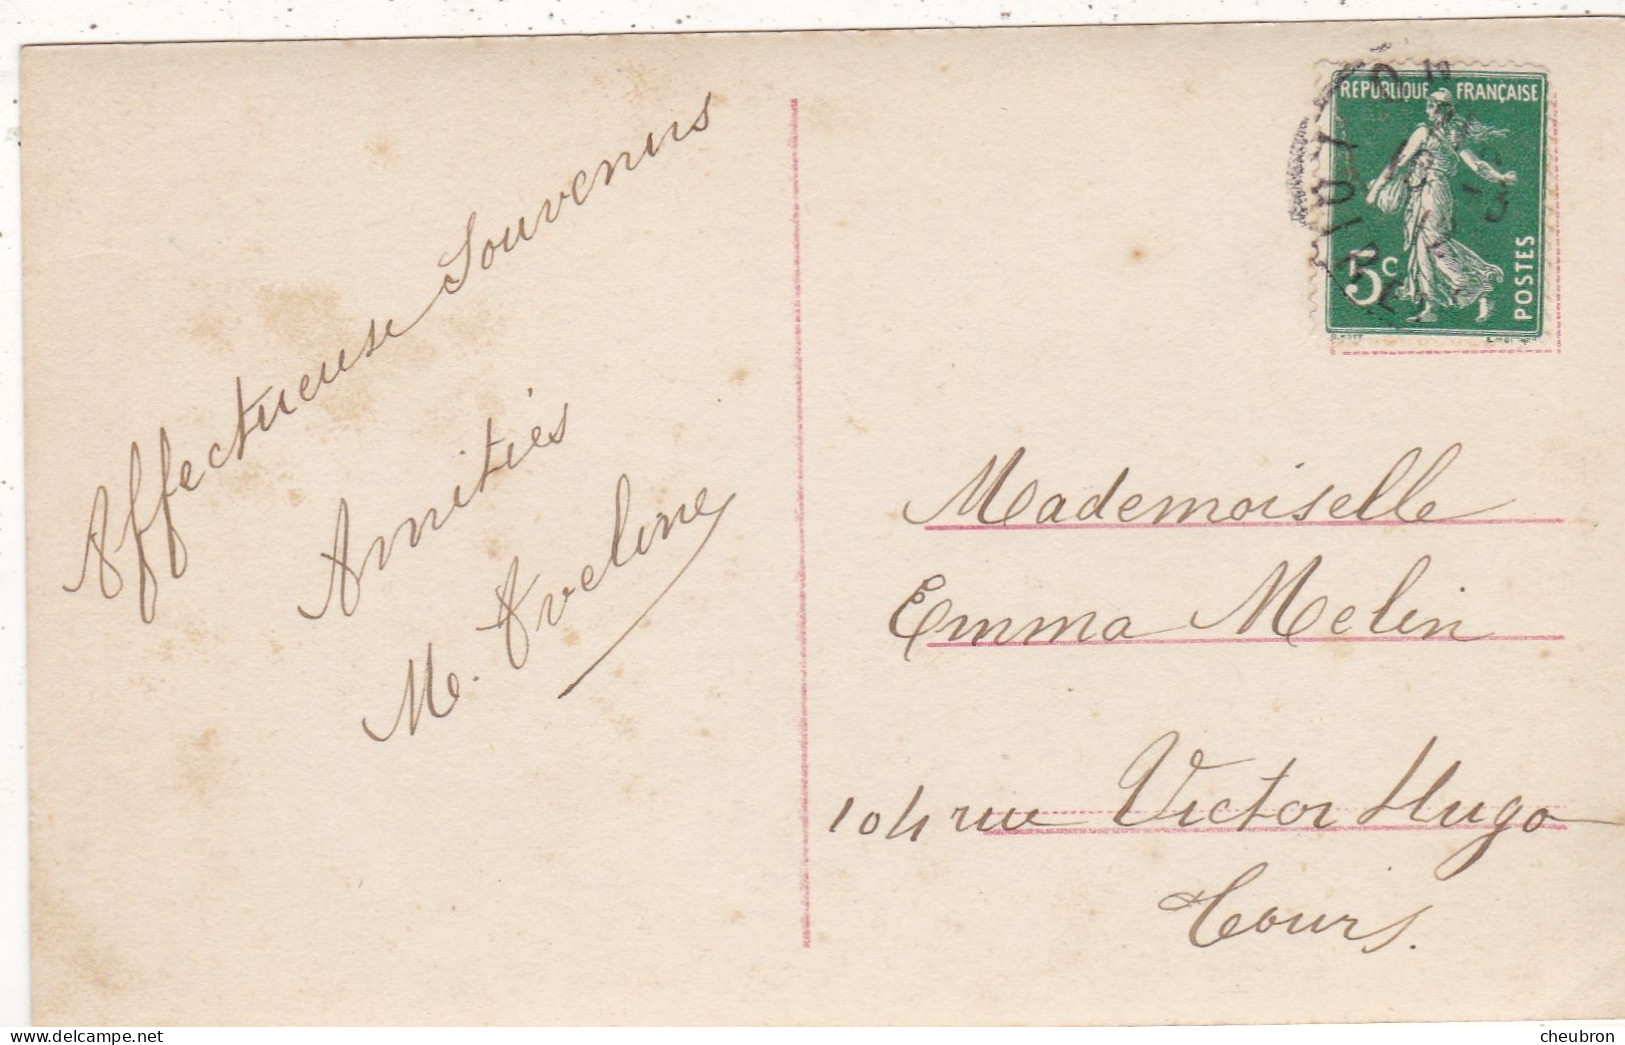 Affectueuse Souvenirs
Amitiés
M. Aveline
REPUBLIQUE FRANÇAISE
5c
POSTES
Mademoiselle
Emma Melin
104 rue Victor Hugo
Tours.
cheubron